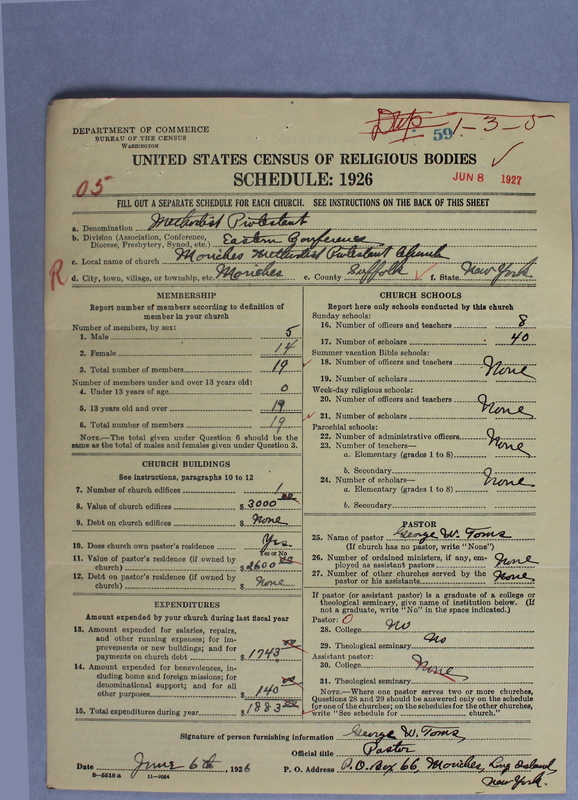 Dup 1-3-5
59
DEPARTMENT OF COMMERCE
BUREAU OF THE CENSUS
WASHINGTON
UNITED STATES CENSUS OF RELIGIOUS BODIES
SCHEDULE: 1926
JUN 8 1927
05
FILL OUT A SEPARATE SCHEDULE FOR EACH CHURCH. SEE INSTRUCTIONS ON THE BACK OF THIS SHEET
a. Denomination Methodist Protestant
b. Division (Association, Conference, Diocese, Presbytery, Synod, etc.) Eastern Conference
c. Local name of church Moriches Methodist Protestant Church
R
d. City, town, village, or township, etc. Moriches e. County Suffolk f. State New York
MEMBERSHIP
Report number of members according to definition of
member in your church
Number of members, by sex:
1. Male 5
2. Female 14
3. Total number of members 19
Number of members under and over 13 years old:
4. Under 13 years of age 0
5. 13 years old and over 19
6. Total number of members 19
NOTE.—The total given under Question 6 should be the
same as the total of males and females given under Question 3.
CHURCH BUILDINGS
See instructions, paragraphs 10 to 12
7. Number of church edifices 1
8. Value of church edifices $ 3000 00
9. Debt on church edifices $ None
10. Does church own pastor's residence Yes
Yes or No
11. Value of pastor's residence (if owned by
church) $ 2600 00
12. Debt on pastor's residence (if owned by
church) $ None
EXPENDITURES
Amount expended by your church during last fiscal year
13. Amount expended for salaries, repairs,
and other running expenses; for im-
provements or new buildings; and for
payments on church debt $ 1743 00
14. Amount expended for benevolences, in-
cluding home and foreign missions; for
denominational support; and for all
other purposes $ 140 00
15. Total expenditures during year $ 1883 00
CHURCH SCHOOLS
Report here only schools conducted by this church
Sunday schools:
16. Number of officers and teachers 8
17. Number of scholars 40
Summer vacation Bible schools:
18. Number of officers and teachers None
19. Number of scholars
Week-day religious schools:
20. Number of officers and teachers None
21. Number of scholars
Parochial schools:
22. Number of administrative officers None
23. Number of teachers—
a. Elementary (grades 1 to 8)
b. Secondary
24. Number of scholars— None
a. Elementary (grades 1 to 8)
b. Secondary
PASTOR
25. Name of pastor George W. Toms
(If church has no pastor, write "None")
26. Number of ordained ministers, if any, em-
ployed as assistant pastors None
27. Number of other churches served by the
pastor or his assistants None
If pastor (or assistant pastor) is a graduate of a college or
theological seminary, give name of institution below. (If
not a graduate, write "No" in the space indicated.)
Pastor: 0
28. College No
29. Theological seminary No
Assistant pastor:
30. College None
31. Theological seminary
NOTE.—Where one pastor serves two or more churches,
Questions 28 and 29 should be answered only on the schedule
for one of the churches; on the schedules for the other churches,
write "See schedule for church."
Signature of person furnishing information George W. Toms
Official title Pastor
Date June 6th, 1926 P. O. Address P.O. Box 66, Moriches, Long Island,
New York.
8-5518 a 11-9024